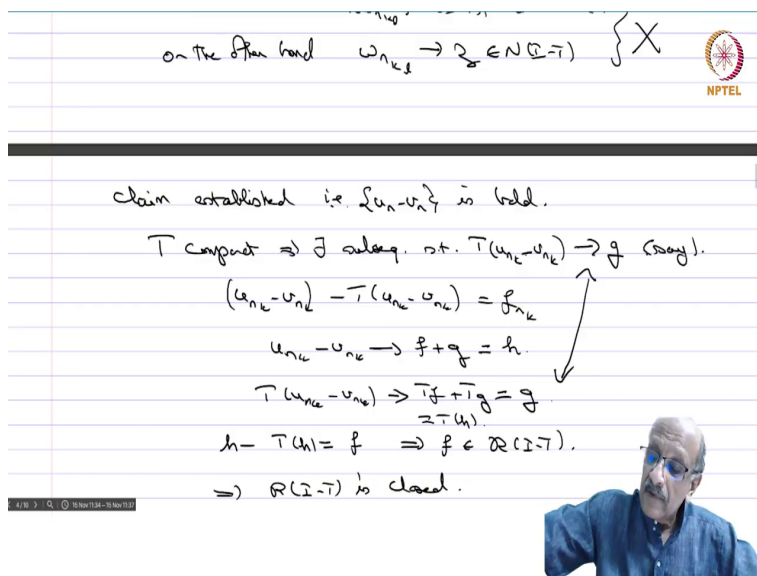 on the other hand ω_{n_{k_l}} → z ∈ N(I-T) } X
NPTEL
Claim established i.e. {u_n - v_n} is bdd.
T compact ⇒ ∃ subseq. s.t. T(u_{n_k} - v_{n_k}) → g (say).
(u_{n_k} - v_{n_k}) - T(u_{n_k} - v_{n_k}) = f_{n_k}
u_{n_k} - v_{n_k} → f + g = h.
T(u_{n_k} - v_{n_k}) → Tf + Tg = g
= T(h).
h - T(h) = f ⇒ f ∈ R(I-T).
⇒ R(I-T) is closed.
4/10 15 Nov 11:34 - 15 Nov 11:37